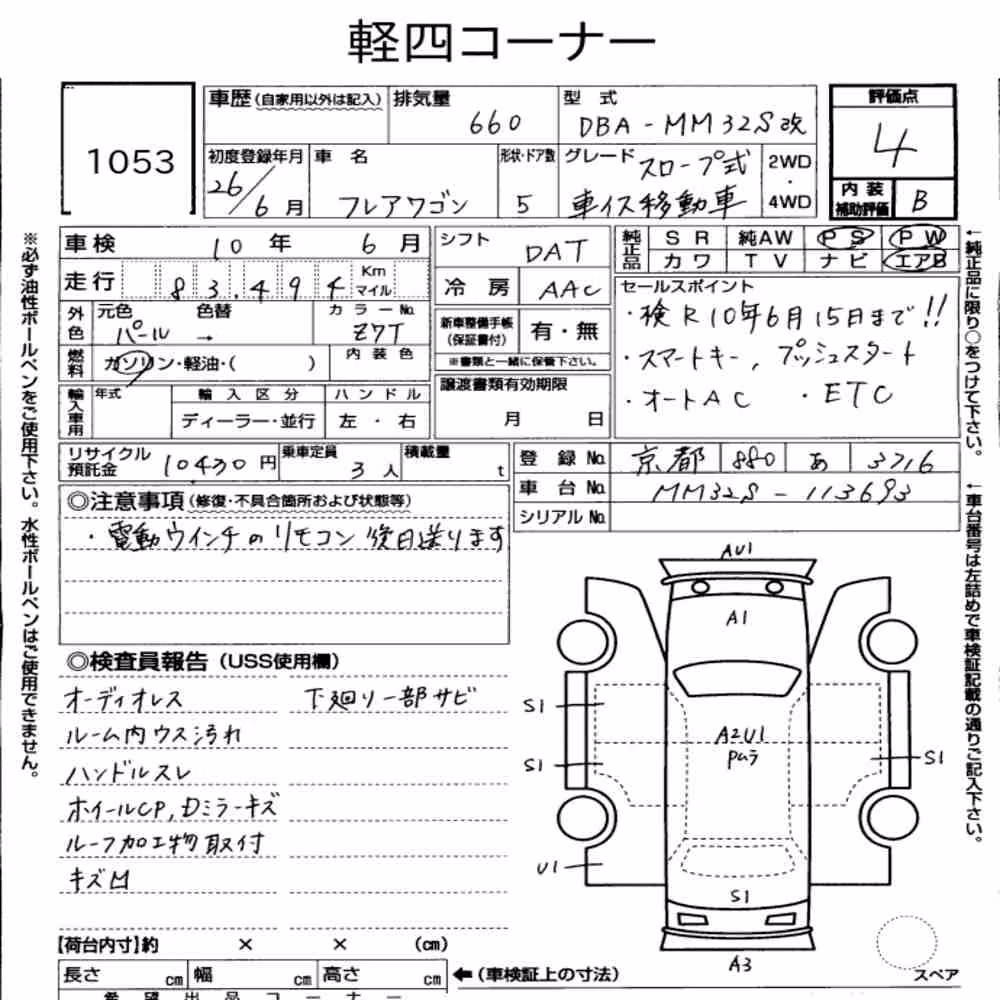 軽四コーナー
1053
車歴 (自家用以外は記入) 排気量 型式 評価点
660 DBA-MM32S改 4
初度登録年月 車名 形状・ドア数 グレード スロープ式 2WD・4WD
26/6月 フレアワゴン 5 車イス移動車 内装補助評価 B
車検 10年 6月 シフト DAT 純正品 SR 純AW PS PW
カワ TV ナビ エアB
走行 83,494 Km マイル 冷房 AAC
セールスポイント
・検R10年6月15日まで!!
・スマートキー, プッシュスタート
・オートAC ・ETC
外色 元色 色替 カラーNo.
パール → Z7T
新車整備手帳(保証書付) 有・無
燃料 ガソリン・軽油・( ) 内装色
※書類と一緒に保管下さい。
譲渡書類有効期限
月 日
輸入車用 年式 輸入区分 ハンドル
ディーラー・並行 左・右
リサイクル預託金 10430円 乗車定員 3人 積載量 t
登録No. 京都 880 あ 3716
車台No. MM32S-113693
シリアルNo.
◎注意事項(修復・不具合箇所および状態等)
・電動ウインチのリモコン後日送ります
◎検査員報告(USS使用欄)
オーディオレス 下廻り一部サビ
ルーム内ウス汚れ
ハンドルスレ
ホイールCP,Dミラーキズ
ルーフ加工物取付
キズ凹
AU1
A1
S1
A2U1
Pムラ
S1
S1
U1
S1
A3
スペア
【荷台内寸】約 × × (cm)
長さ cm 幅 cm 高さ cm ←(車検証上の寸法)
希望出品コーナー
※必ず油性ボールペンをご使用下さい。水性ボールペンはご使用できません。
←純正品に限り○をつけて下さい。
←車台番号は左詰めで車検証記載の通りご記入下さい。